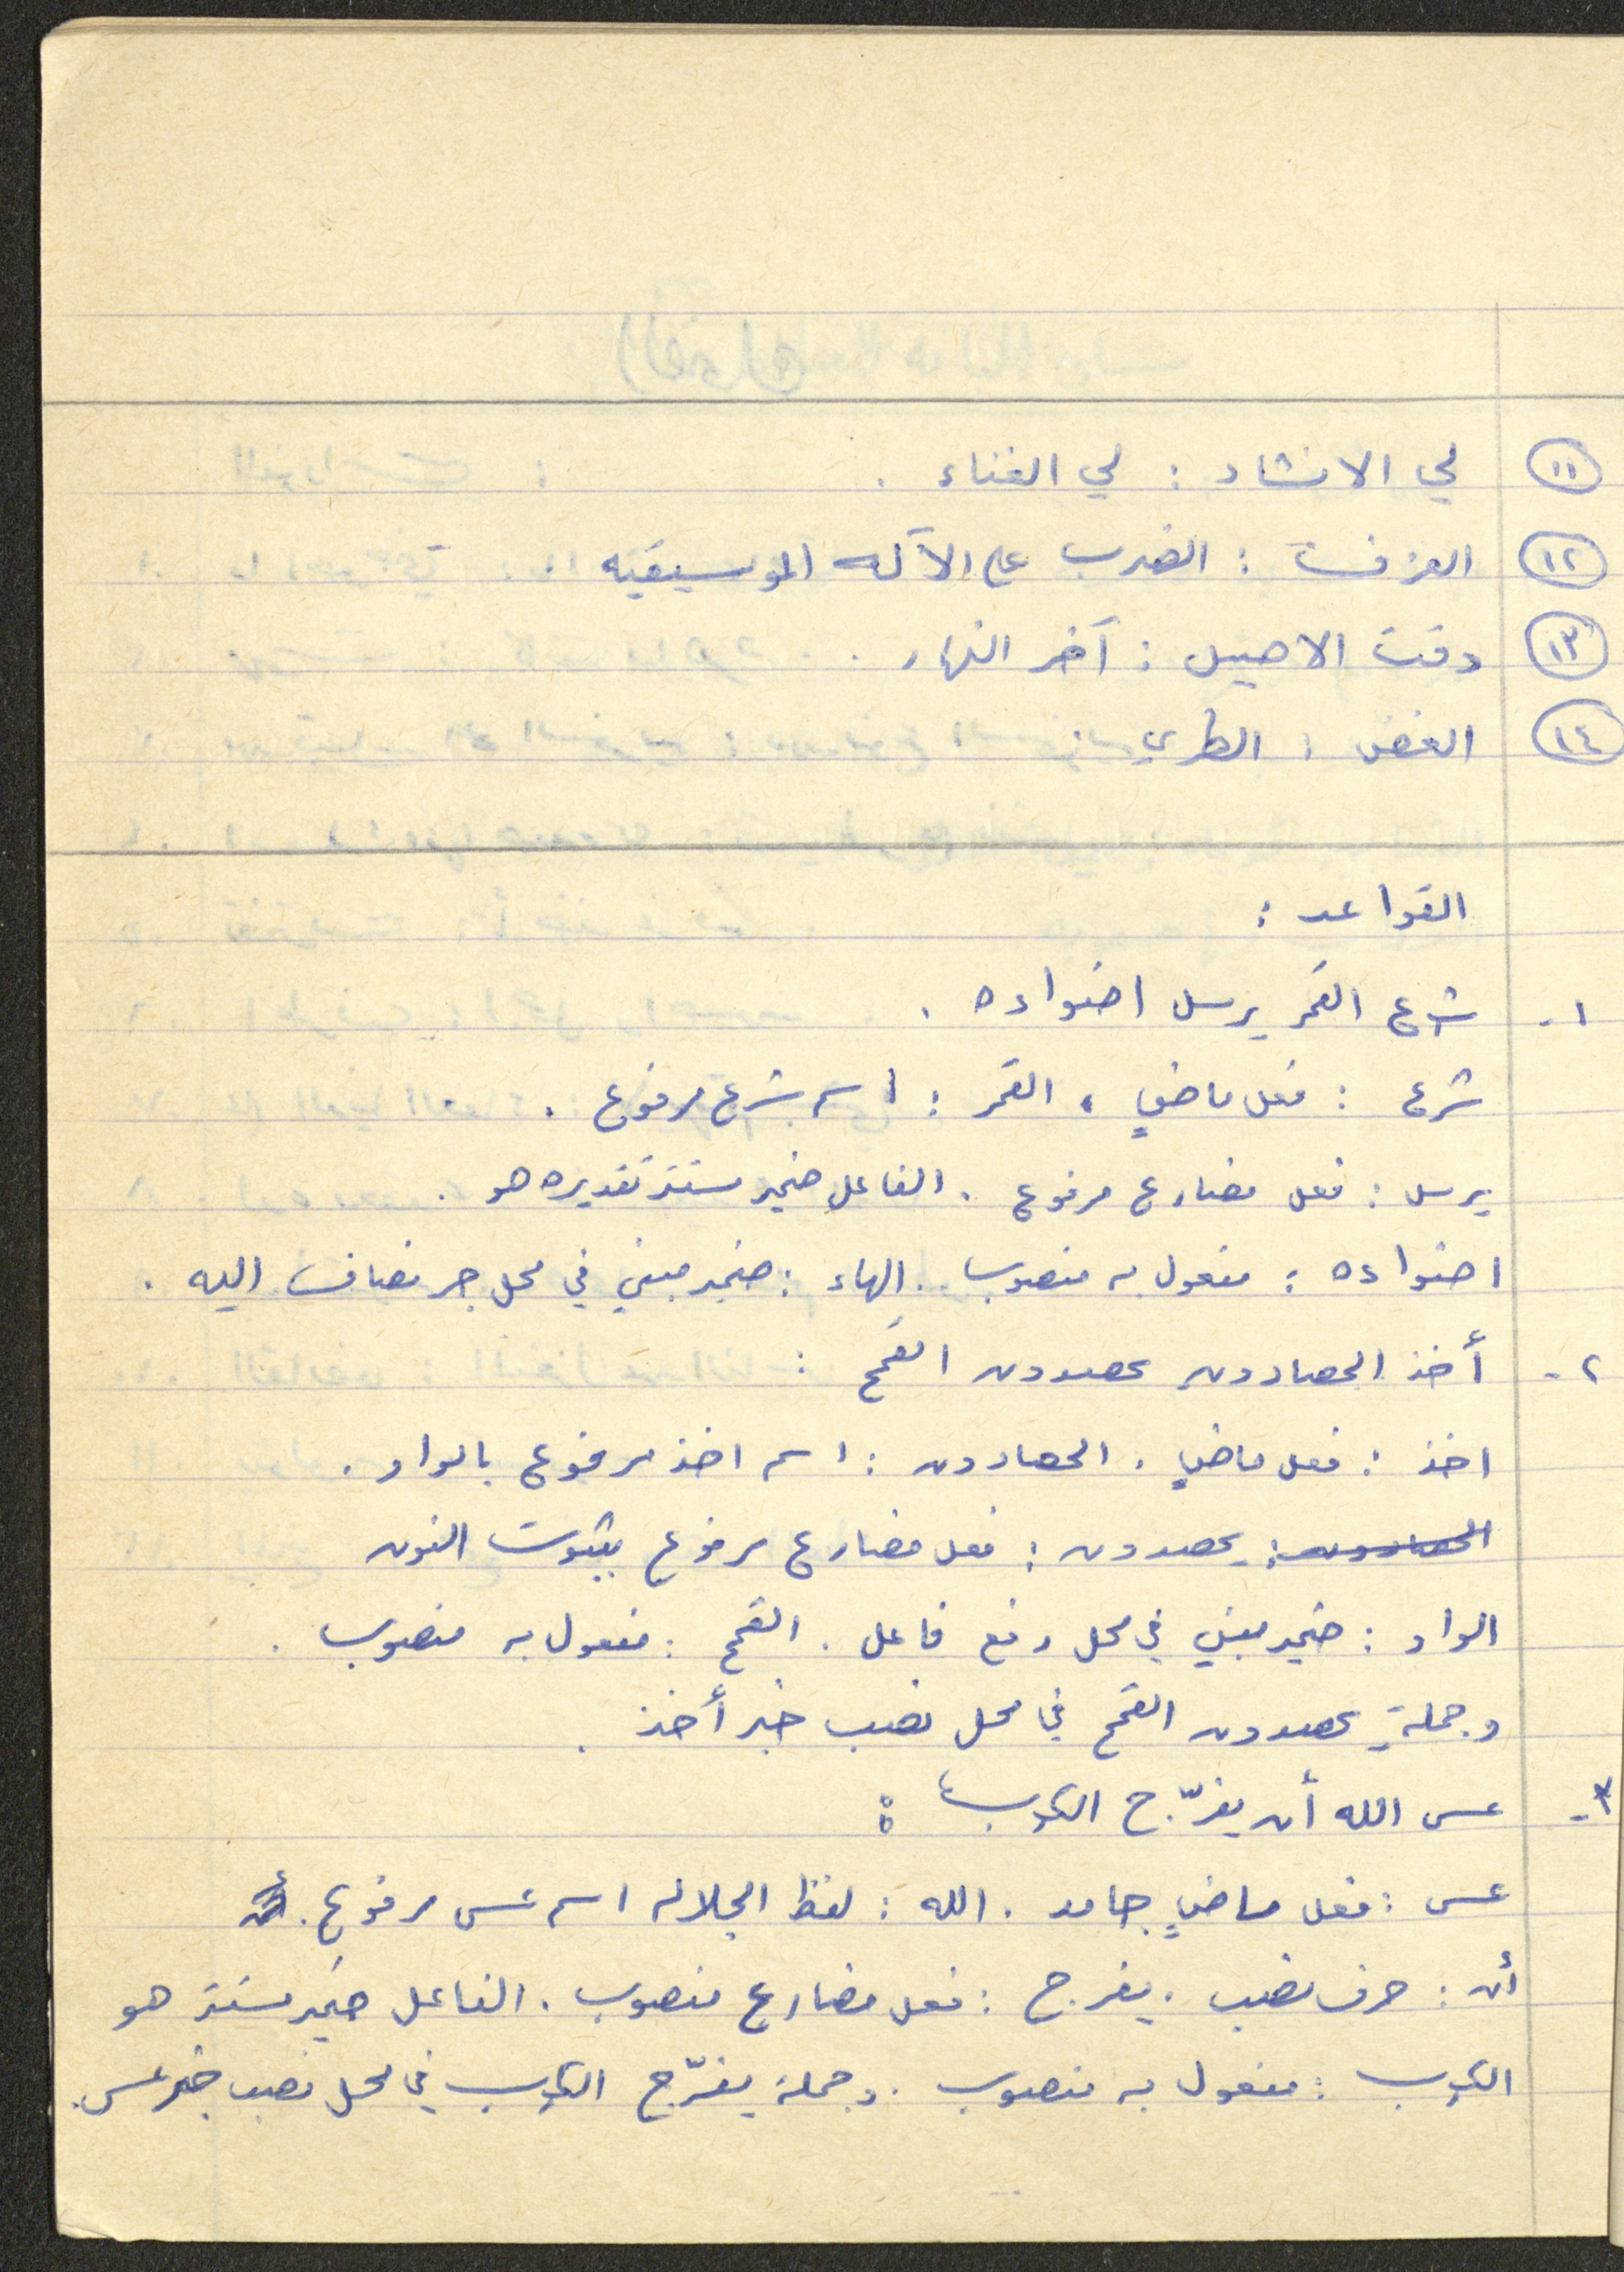 ١١ لي الانشاد : لي الغناء .
١٢ العزف : الضرب على الآله الموسيقيه
١٣ وقت الاصيل : آخر النهار .
١٤ الغض : الطري
القواعد :
١- شرع القمر يرسل اضواءه .
شرع : فعل ماضي . القمر : اسم شرع مرفوع .
يرسل : فعل مضارع مرفوع . الفاعل ضمير مستتر تقديره هو .
اضواءه : مفعول به منصوب . الهاء : ضمير مبني في محل جر مضاف اليه .
٢- أخذ الحصادون يحصدون القمح :
اخذ : فعل ماضي . الحصادون : اسم اخذ مرفوع بالواو .
الحصادون : يحصدون : فعل مضارع مرفوع بثبوت النون
الواو : ضمير مبني في محل رفع فاعل . القمح : مفعول به منصوب .
وجملة يحصدون القمح في محل نصب خبر أخذ .
٣- عسى الله أن يفرّج الكرب :
عسى : فعل ماضي جامد . الله : لفظ الجلاله اسم عسى مرفوع .
أن : حرف نصب . يفرج : فعل مضارع منصوب . الفاعل ضمير مستتر هو
الكرب : مفعول به منصوب . وجملة يفرّج الكرب في محل نصب خبر عسى .